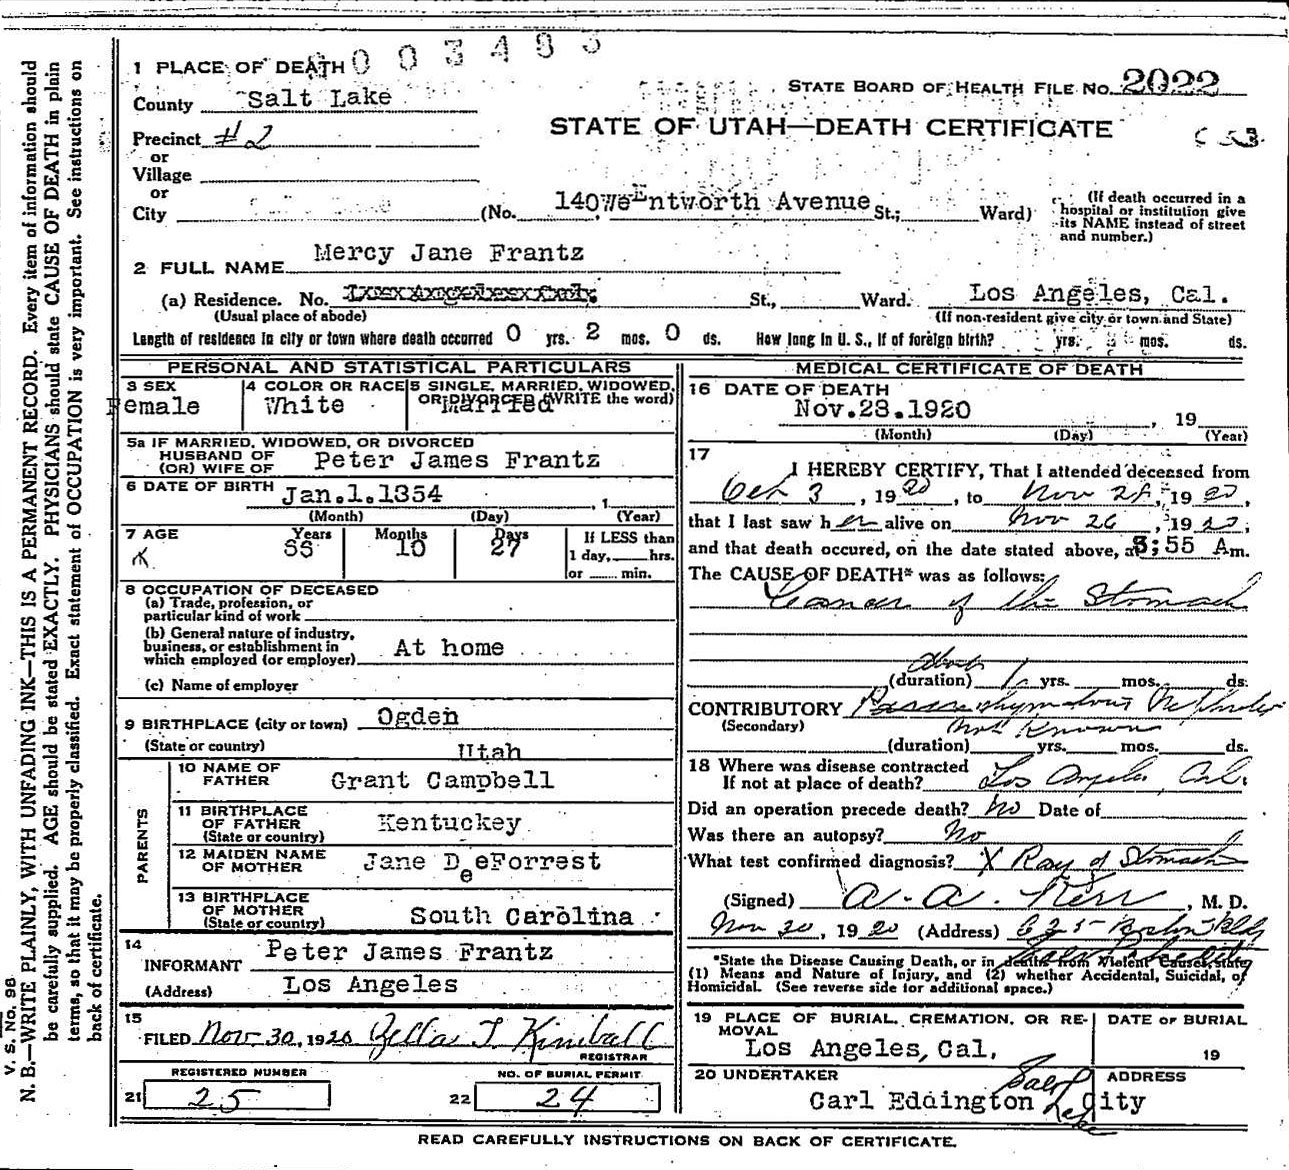 003483
1 PLACE OF DEATH
County Salt Lake
STATE BOARD OF HEALTH FILE NO. 2022
Precinct #2
STATE OF UTAH—DEATH CERTIFICATE
or
Village
or
City (No. 140 WeEntworth Avenue St.; Ward)
(If death occurred in a hospital or institution give its NAME instead of street and number.)
2 FULL NAME Mercy Jane Frantz
(a) Residence. No. St., Ward. Los Angeles, Cal.
(Usual place of abode) (If non-resident give city or town and State)
Length of residence in city or town where death occurred 0 yrs. 2 mos. 0 ds. How long in U. S., if of foreign birth? yrs. mos. ds.
PERSONAL AND STATISTICAL PARTICULARS
3 SEX Female
4 COLOR OR RACE White
5 SINGLE, MARRIED, WIDOWED, OR DIVORCED (WRITE the word) Married
5a IF MARRIED, WIDOWED, OR DIVORCED
HUSBAND OF
(OR) WIFE OF Peter James Frantz
6 DATE OF BIRTH Jan.1.1854 , 1
(Month) (Day) (Year)
7 AGE Years Months 10 Days 27
If LESS than
1 day, hrs.
or min.
8 OCCUPATION OF DECEASED
(a) Trade, profession, or
particular kind of work
(b) General nature of industry,
business, or establishment in
which employed (or employer) At home
(c) Name of employer
9 BIRTHPLACE (city or town) Ogden
(State or country) Utah
PARENTS
10 NAME OF
FATHER Grant Campbell
11 BIRTHPLACE
OF FATHER
(State or country) Kentuckey
12 MAIDEN NAME
OF MOTHER Jane DeeForrest
13 BIRTHPLACE
OF MOTHER
(State or country) South Carolina
14
INFORMANT Peter James Frantz
(Address) Los Angeles
15
FILED Nov 30, 1920 Zella T Kimball
REGISTRAR
REGISTERED NUMBER NO. OF BURIAL PERMIT
21 25 22 24
MEDICAL CERTIFICATE OF DEATH
16 DATE OF DEATH
Nov.28.1920 , 19
(Month) (Day) (Year)
17
I HEREBY CERTIFY, That I attended deceased from
Oct 3, 1920, to Nov 28, 1920,
that I last saw her alive on Nov 26, 1920,
and that death occured, on the date stated above, at 8:55 Am.
The CAUSE OF DEATH* was as follows:
Cancer of the Stomach
about
(duration) 1 yrs. mos. ds.
CONTRIBUTORY Parenchymatous Nephritis
(Secondary) Not Known
(duration) yrs. mos. ds.
18 Where was disease contracted
If not at place of death? Los Angeles, Cal.
Did an operation precede death? No Date of
Was there an autopsy? No
What test confirmed diagnosis? X Ray of Stomach
(Signed) A. A. Kerr, M. D.
Nov 30, 1920 (Address) 625 Boston Bldg
*State the Disease Causing Death, or in deaths from Violent Causes, state
(1) Means and Nature of Injury, and (2) whether Accidental, Suicidal, or
Homicidal. (See reverse side for additional space.)
19 PLACE OF BURIAL, CREMATION, OR RE-
MOVAL
Los Angeles, Cal.
DATE OF BURIAL
19
20 UNDERTAKER
Carl Eddington
ADDRESS
Salt Lake City
READ CAREFULLY INSTRUCTIONS ON BACK OF CERTIFICATE.
V. S. No. 98
N. B.—WRITE PLAINLY, WITH UNFADING INK—THIS IS A PERMANENT RECORD. Every item of information should
be carefully supplied. AGE should be stated EXACTLY. PHYSICIANS should state CAUSE OF DEATH in plain
terms, so that it may be properly classified. Exact statement of OCCUPATION is very important. See instructions on
back of certificate.